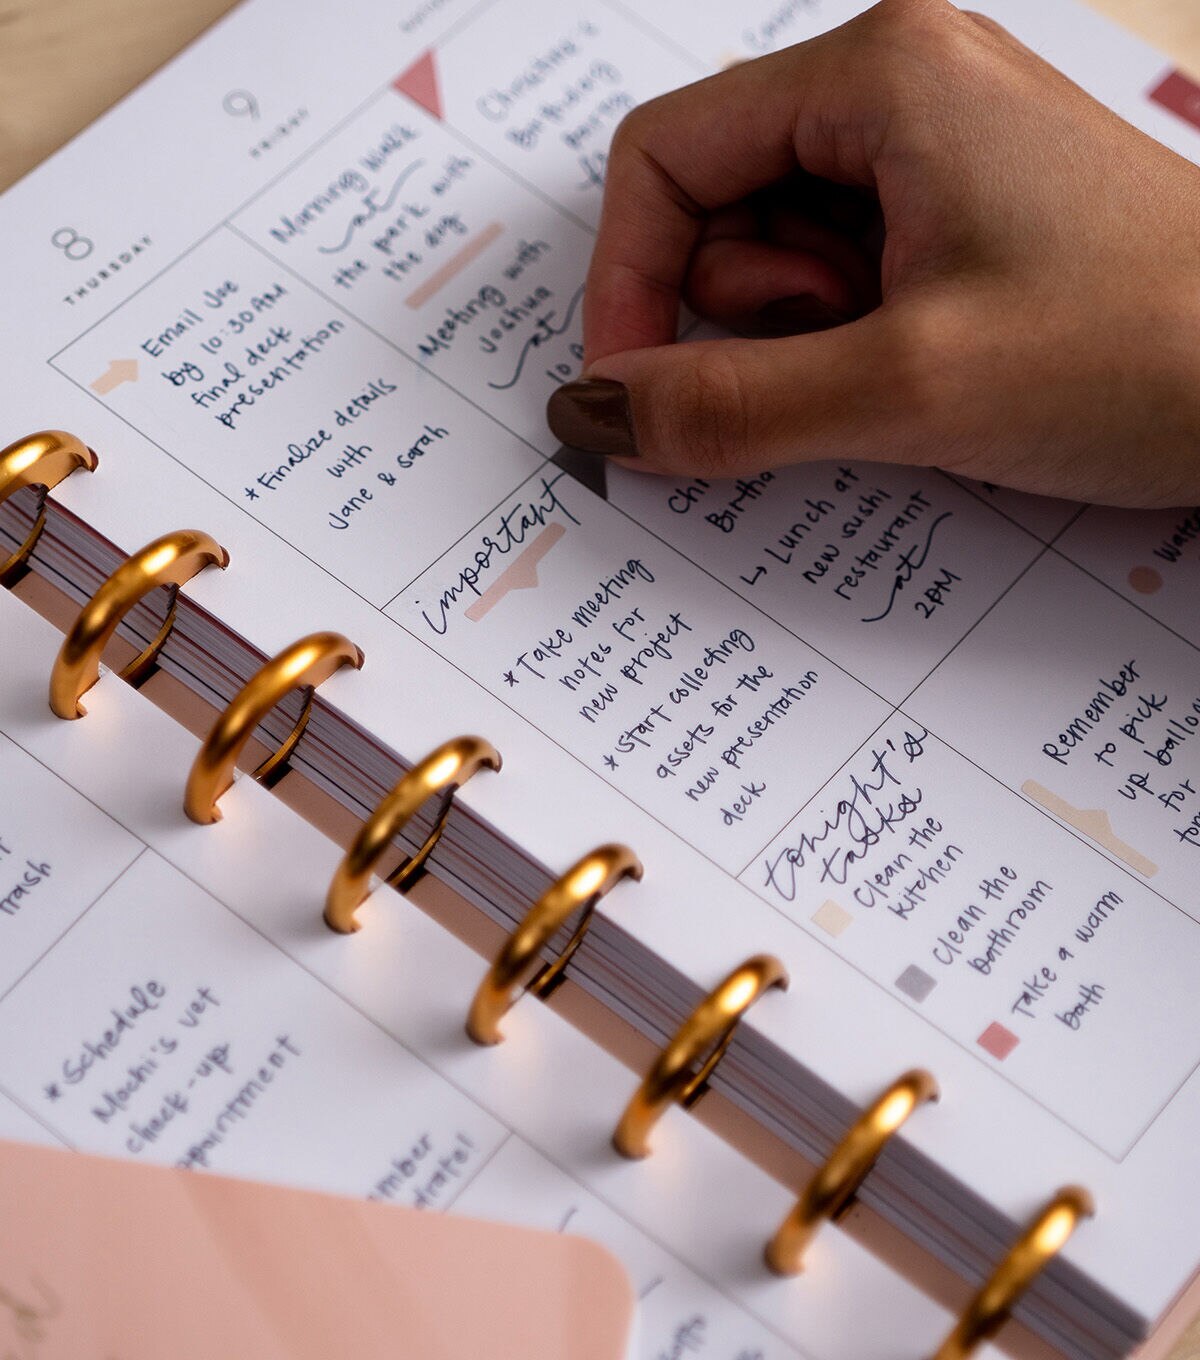 9
FRIDAY
8
THURSDAY
Email Joe
by 10:30 AM
final deck
presentation
*Finalize details
with
Jane & Sarah
Morning Walk
at
the park with
the dog
Meeting with
Joshua
at
10
Christine's
Birthday
party
important
*Take meeting
notes for
new project
*Start collecting
assets for the
new presentation
deck
Lunch at
new sushi
restaurant
at
2PM
tonight's
tasks
Clean the
kitchen
Clean the
bathroom
Take a warm
bath
Remember
to pick
up
for
trash
*Schedule
Mochi's vet
check-up